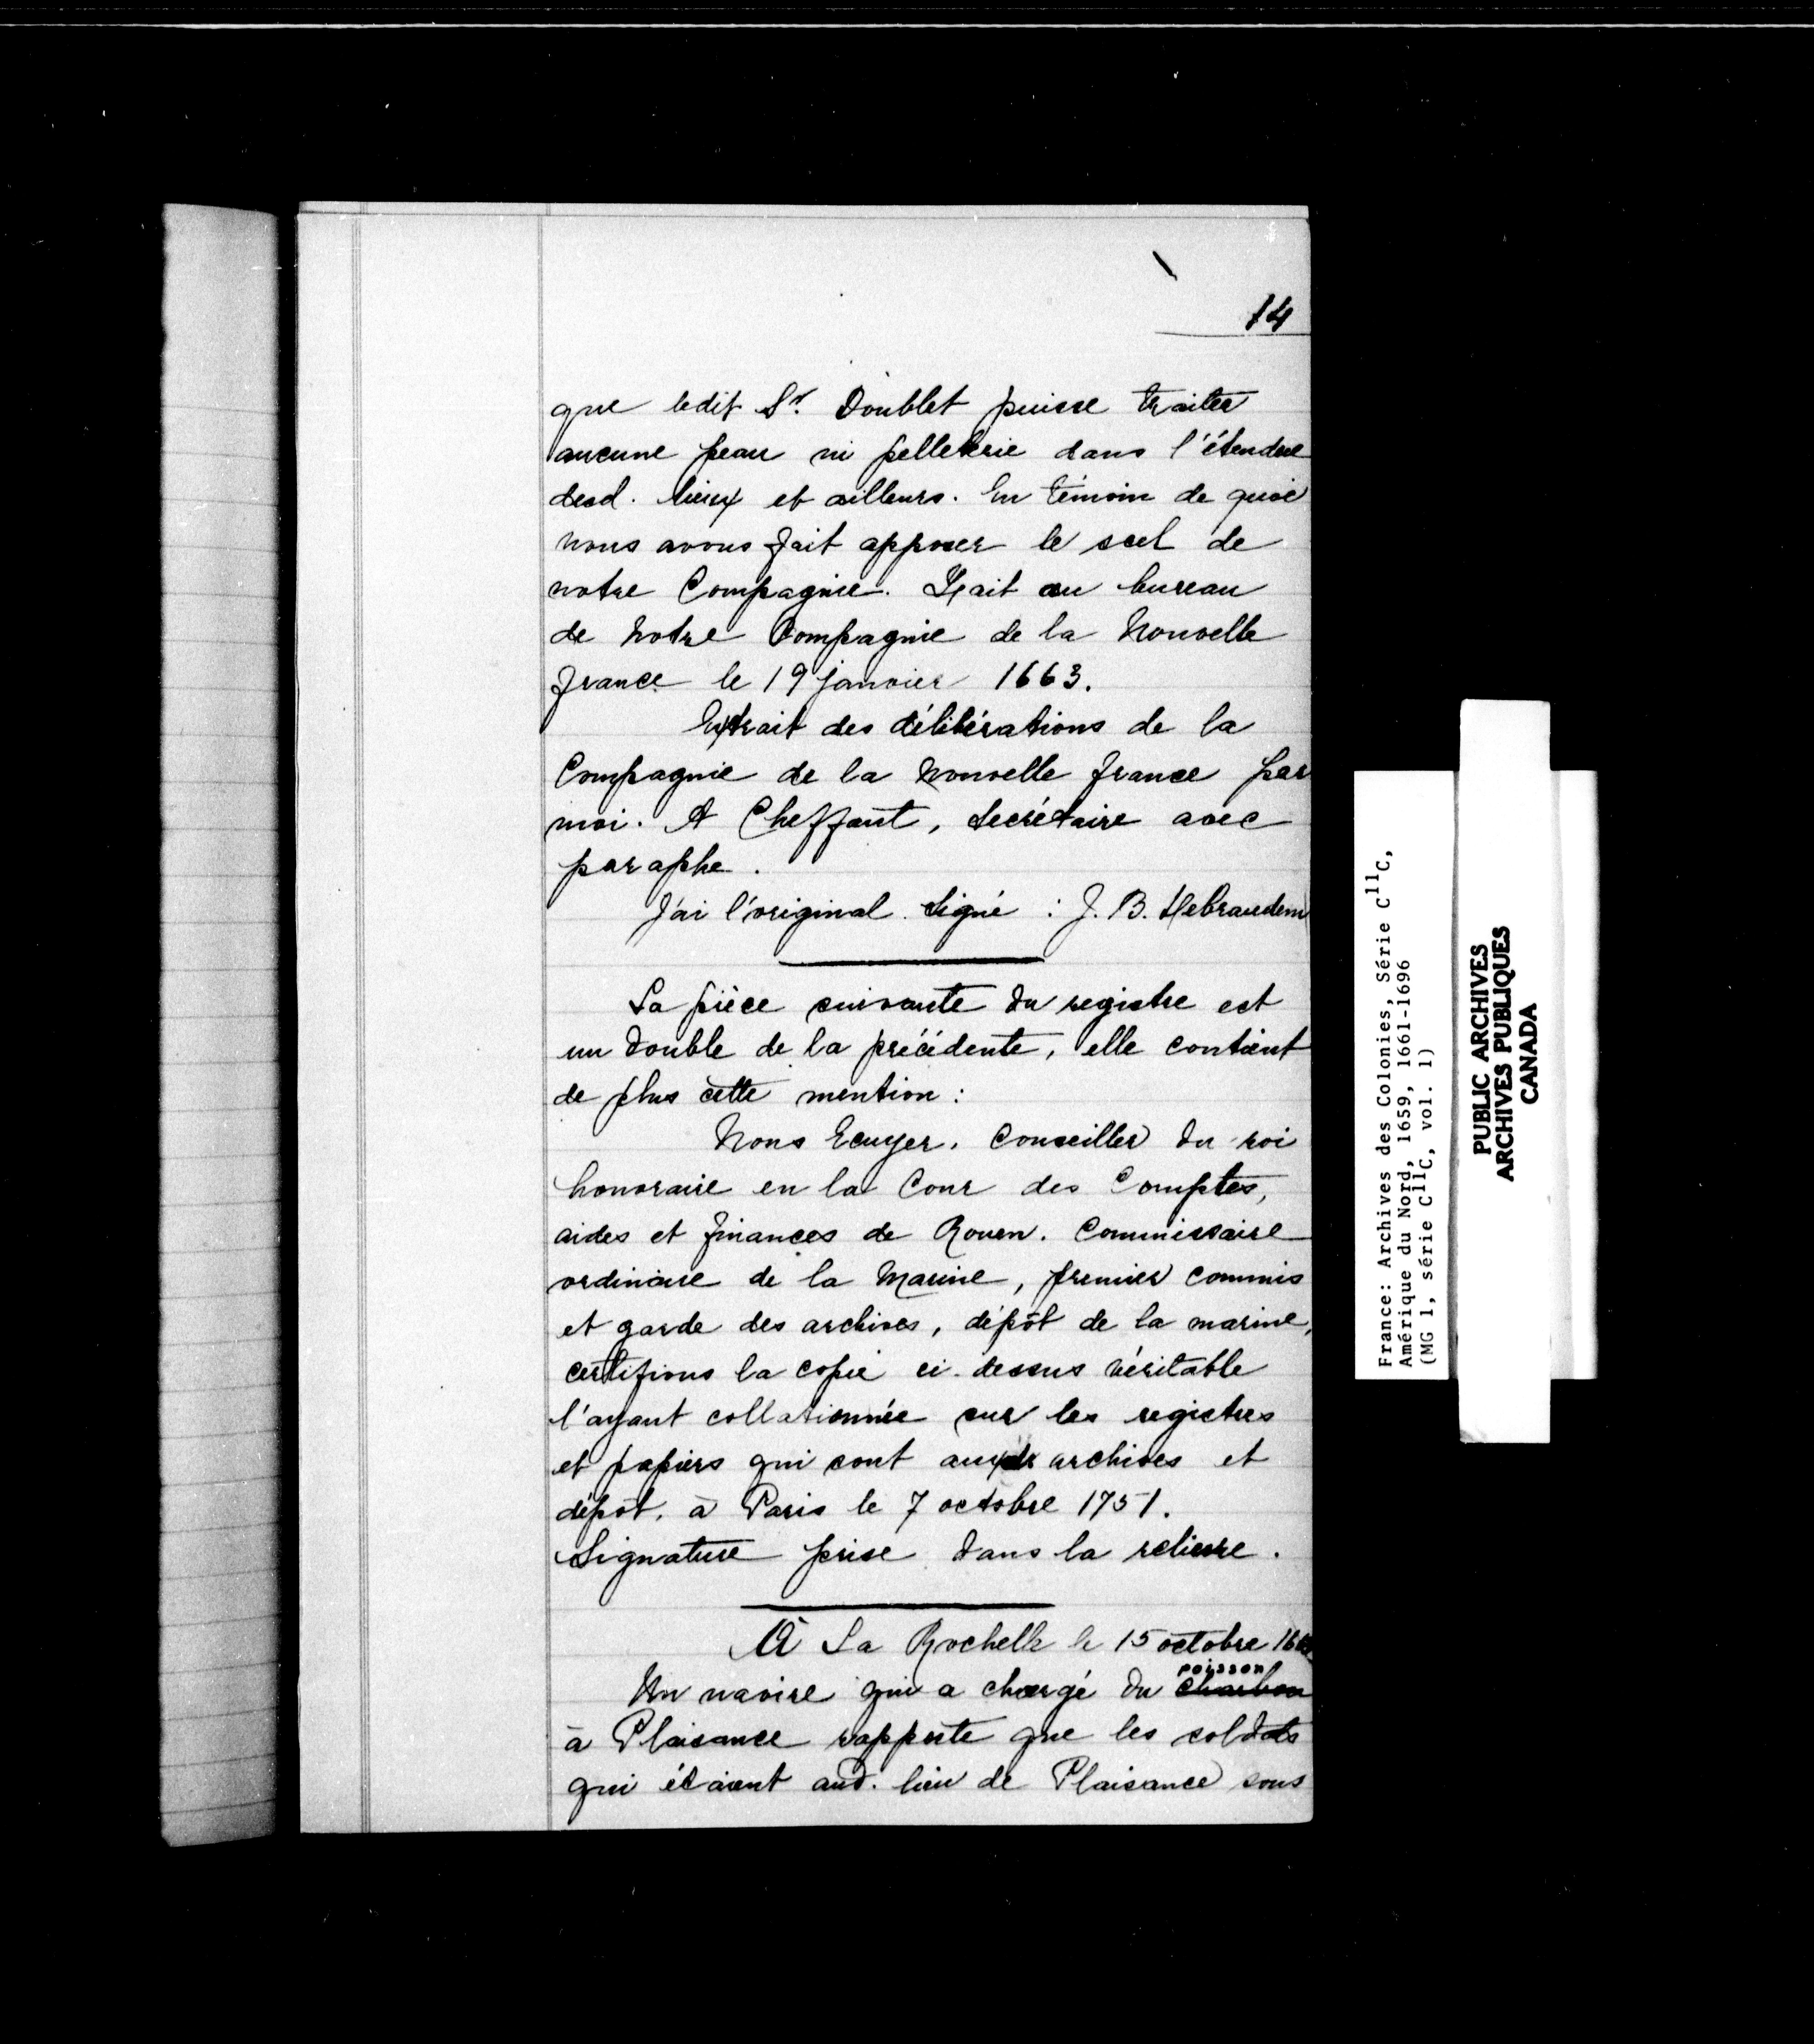 14
que ledit Sr. Doublet puisse traiter
aucune peau ni pelleterie dans l'étendue
desd. lieux et ailleurs. En témoin de quoi
nous avons fait apposer le scel de
notre Compagnie. Fait au bureau
de notre Compagnie de la Nouvelle
france le 19 janvier 1663.
Extrait des délibérations de la
Compagnie de la Nouvelle france par
moi. A Cheffaut, Secrétaire avec
paraphe.
J'ai l'original. Signé : J. B.
La pièce suivante du registre est
un double de la précédente, elle contient
de plus cette mention :
Nous Ecuyer, Conseiller du roi
honoraire en la Cour des Comptes,
aides et finances de Rouen. Commissaire
ordinaire de la Marine, premier commis
et garde des archives, dépôt de la marine,
certifions la copie ci-dessus véritable
l'ayant collationnée sur les registres
et papiers qui sont aux archives et
dépôt, à Paris le 7 octobre 1751.
Signature prise dans la reliure.
À La Rochelle le 15 octobre
poisson
Un navire qui a chargé du charbon
à Plaisance rapporte que les soldats
qui étaient aud. lieu de Plaisance sous
France: Archives des Colonies, Série C11C,
Amérique du Nord, 1659, 1661-1696
(MG 1, série C11C, vol. 1)
PUBLIC ARCHIVES
ARCHIVES PUBLIQUES
CANADA